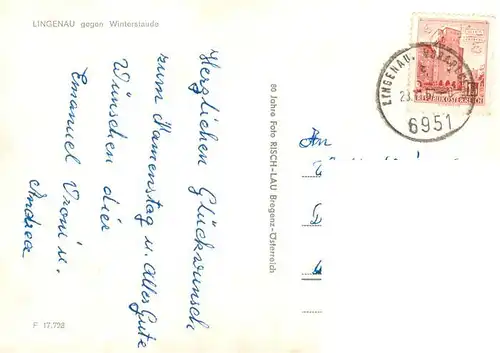 LINGENAU gegen Winterstaude
Herzlichen Glückwunsch
zum Namenstag u. Alles Gute
Wünschen dir
Emanuel Vroni u.
Andrea
F 17.792
80 Jahre Foto RISCH-LAU Bregenz-Österreich
LINGENAU,
6951
REPUBLIK ÖSTERREICH
An